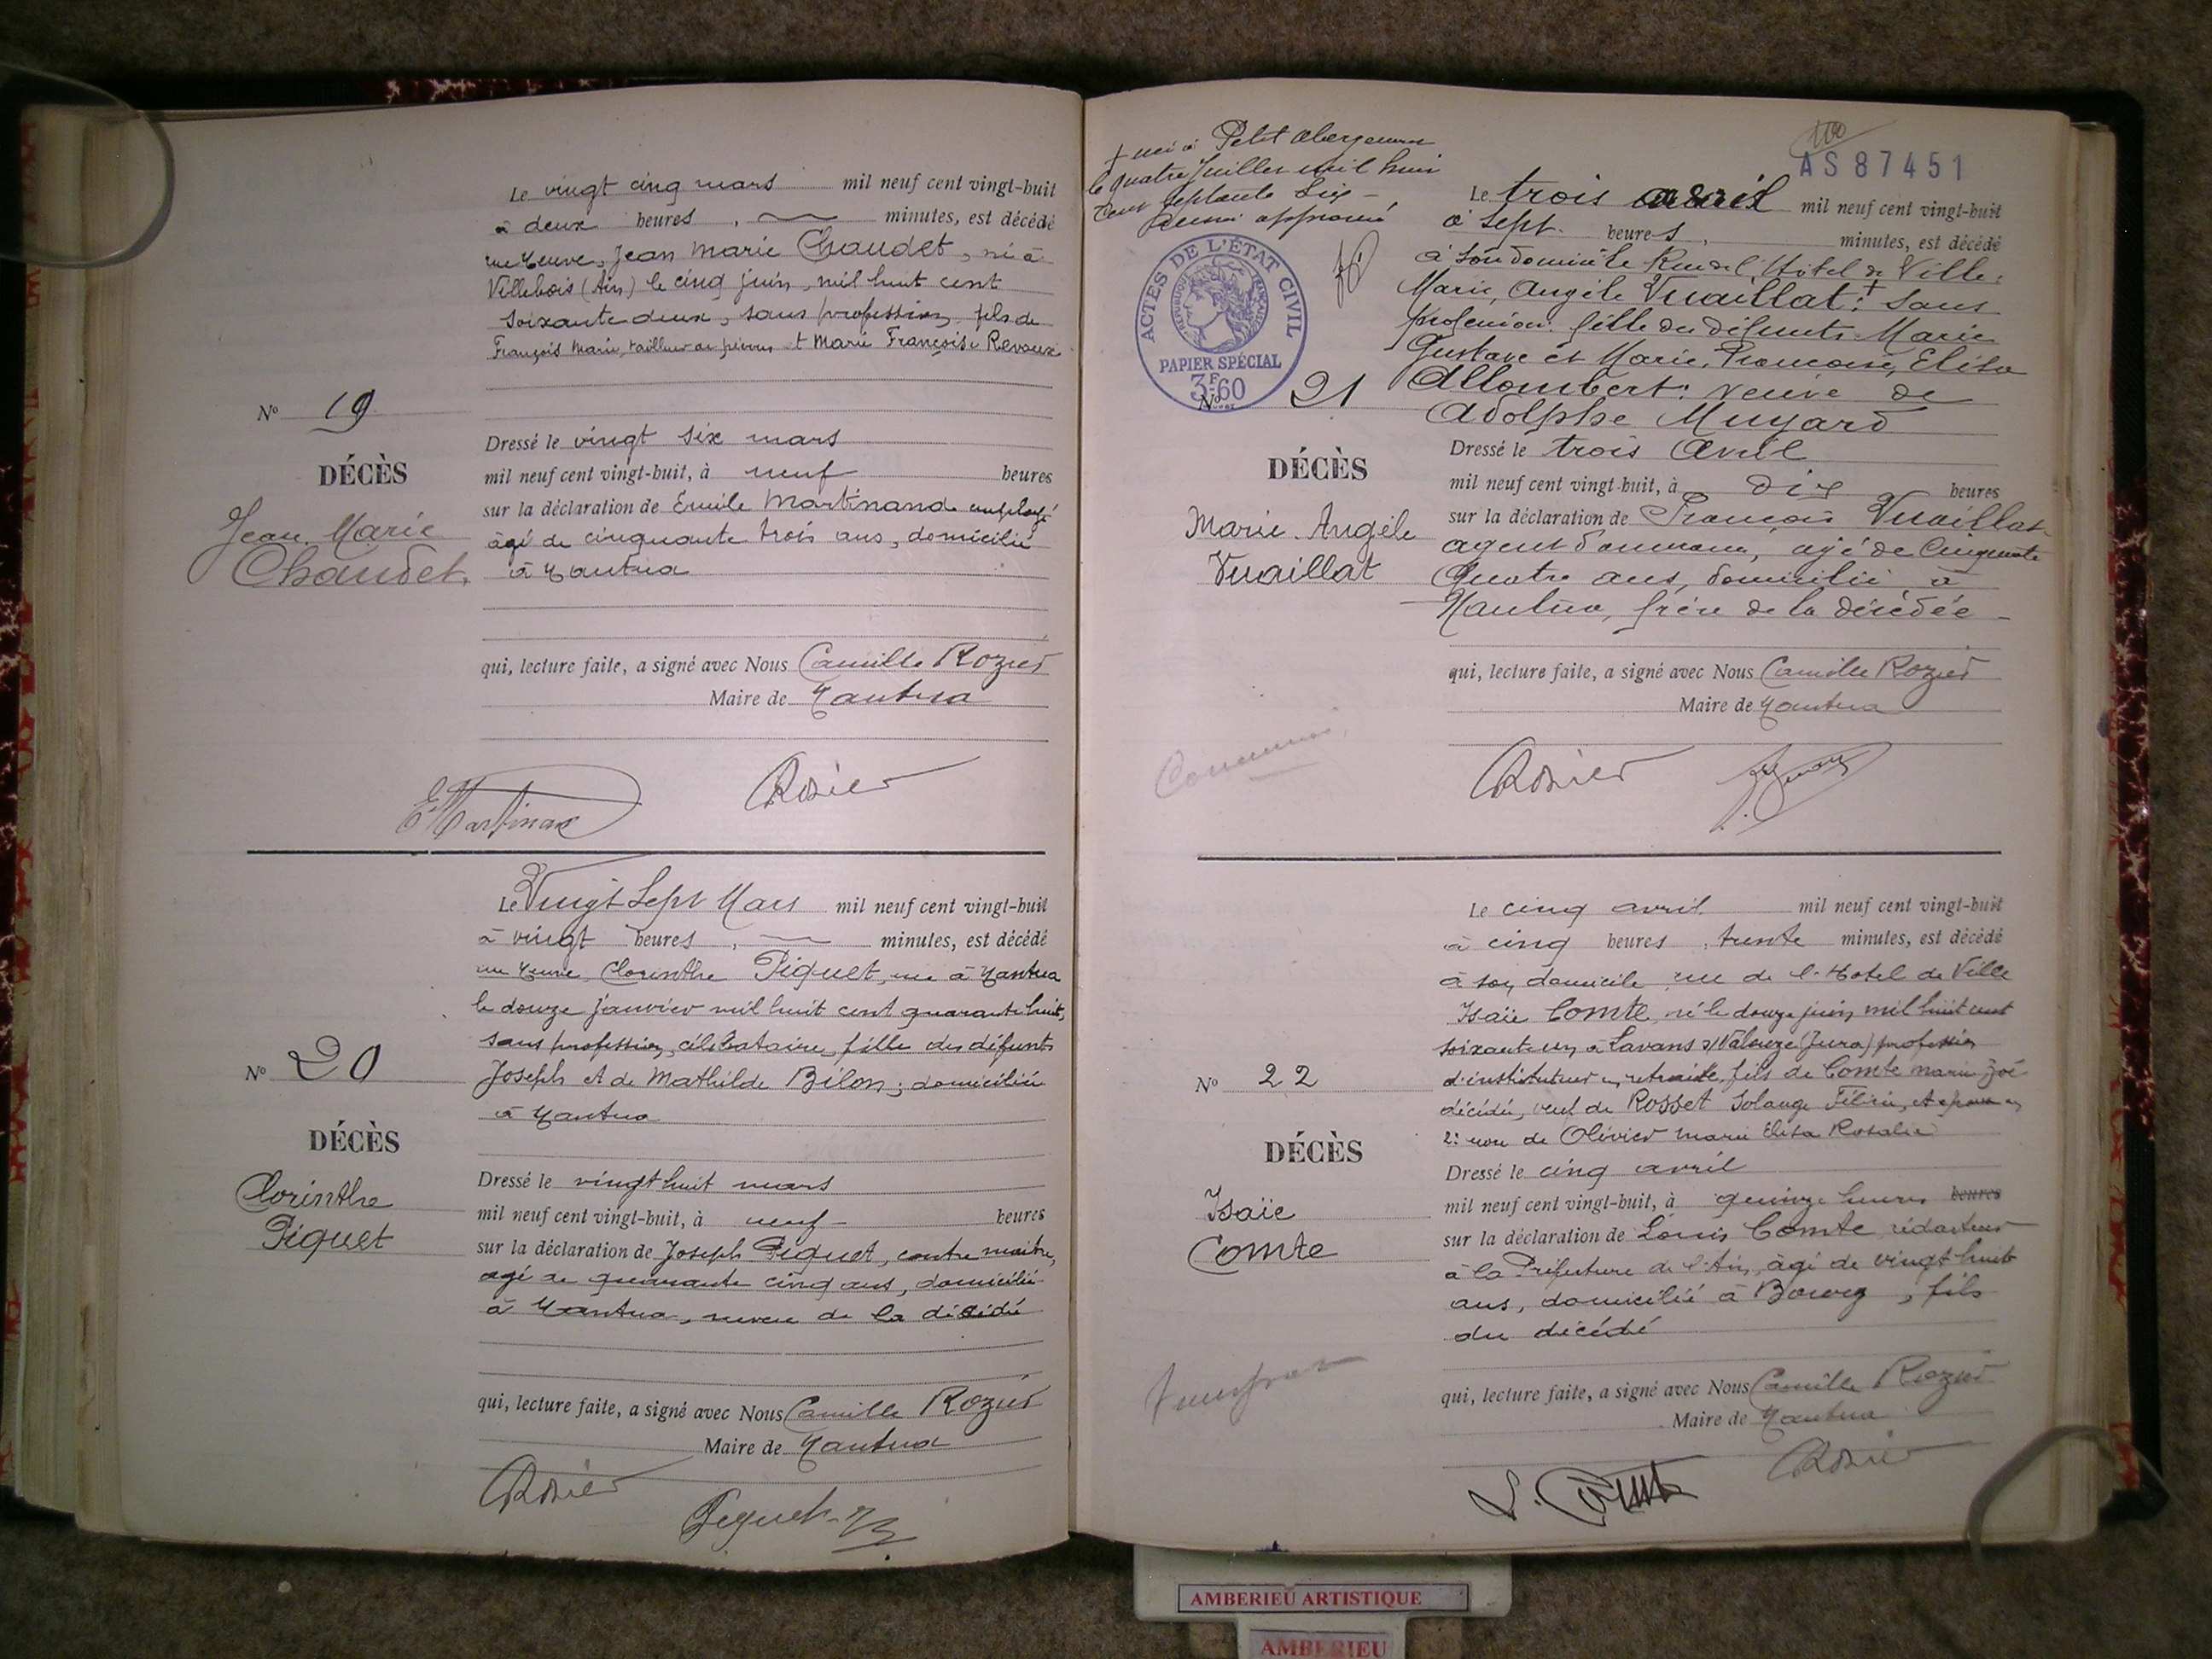 Le vingt cinq mars mil neuf cent vingt-huit
à deux heures, minutes, est décédé
rue neuve, Jean Marie Chaudet, né à
Villebois (Ain) le cinq juin, mil huit cent
soixante deux, sans profession, fils de
François Marie, tailleur de pierres et Marie Françoise Revoux
No 19
DÉCÈS
Jean Marie
Chaudet
Dressé le vingt six mars
mil neuf cent vingt-huit, à neuf heures
sur la déclaration de Émile Martinand employé
âgé de cinquante trois ans, domicilié
à Nantua
qui, lecture faite, a signé avec Nous Camille Rozier
Maire de Nantua
E. Martinand
Rozier
Le Vingt Sept Mars mil neuf cent vingt-huit
à vingt heures, minutes, est décédé
rue neuve, Clorinthe Piquet, née à Nantua
le douze janvier mil huit cent quarante huit,
sans profession, célibataire, fille des défunts
Joseph et de Mathilde Bilon; domiciliée
à Nantua
No 20
DÉCÈS
Clorinthe
Piquet
Dressé le vingt huit mars
mil neuf cent vingt-huit, à neuf heures
sur la déclaration de Joseph Piquet, contre maître,
âgé de quarante cinq ans, domicilié
à Nantua, neveu de la décédée
qui, lecture faite, a signé avec Nous Camille Rozier
Maire de Nantua
Rozier
Piquet
+ née à Petit Abergement
le quatre Juillet mil huit
cent septante six
AS87451
ACTES DE L'ÉTAT CIVIL
RÉPUBLIQUE FRANÇAISE
PAPIER SPÉCIAL
3F60
Le trois avril mil neuf cent vingt-huit
à sept heures, minutes, est décédé
à son domicile Rue de l'Hôtel de Ville,
Marie, Angèle Vuaillat + sans
profession fille des défunts Marie
Gustave et Marie, Françoise, Elisa
Allombert: veuve de
Adolphe Muyard
No 21
DÉCÈS
Marie Angèle
Vuaillat
Dressé le trois Avril
mil neuf cent vingt-huit, à dix heures
sur la déclaration de François Vuaillat
agent d'assurances, âgé de Cinquante
Quatre ans, domicilié à
Nantua, frère de la décédée
qui, lecture faite, a signé avec Nous Camille Rozier
Maire de Nantua
Rozier
Le cinq avril mil neuf cent vingt-huit
à cinq heures, trente minutes, est décédé
à son domicile rue de l'Hotel de Ville
Isaïe Comte, né le douze juin mil huit cent
soixante un à Lavans s/Valouze (Jura) profession
d'instituteur en retraite, fils de Comte marie Zoé
décédée, veuf de Rosset Solange Félicie, et époux en
2e de Olivier Marie Elisa Rosalie
No 22
DÉCÈS
Isaïe
Comte
Dressé le cinq avril
mil neuf cent vingt-huit, à quinze heures heures
sur la déclaration de Louis Comte, rédacteur
à la Préfecture de l'Ain, âgé de vingt huit
ans, domicilié à Bourg, fils
du décédé
qui, lecture faite, a signé avec Nous Camille Rozier
Maire de Nantua
L. Comte
Rozier
AMBERIEU ARTISTIQUE
AMBERIEU